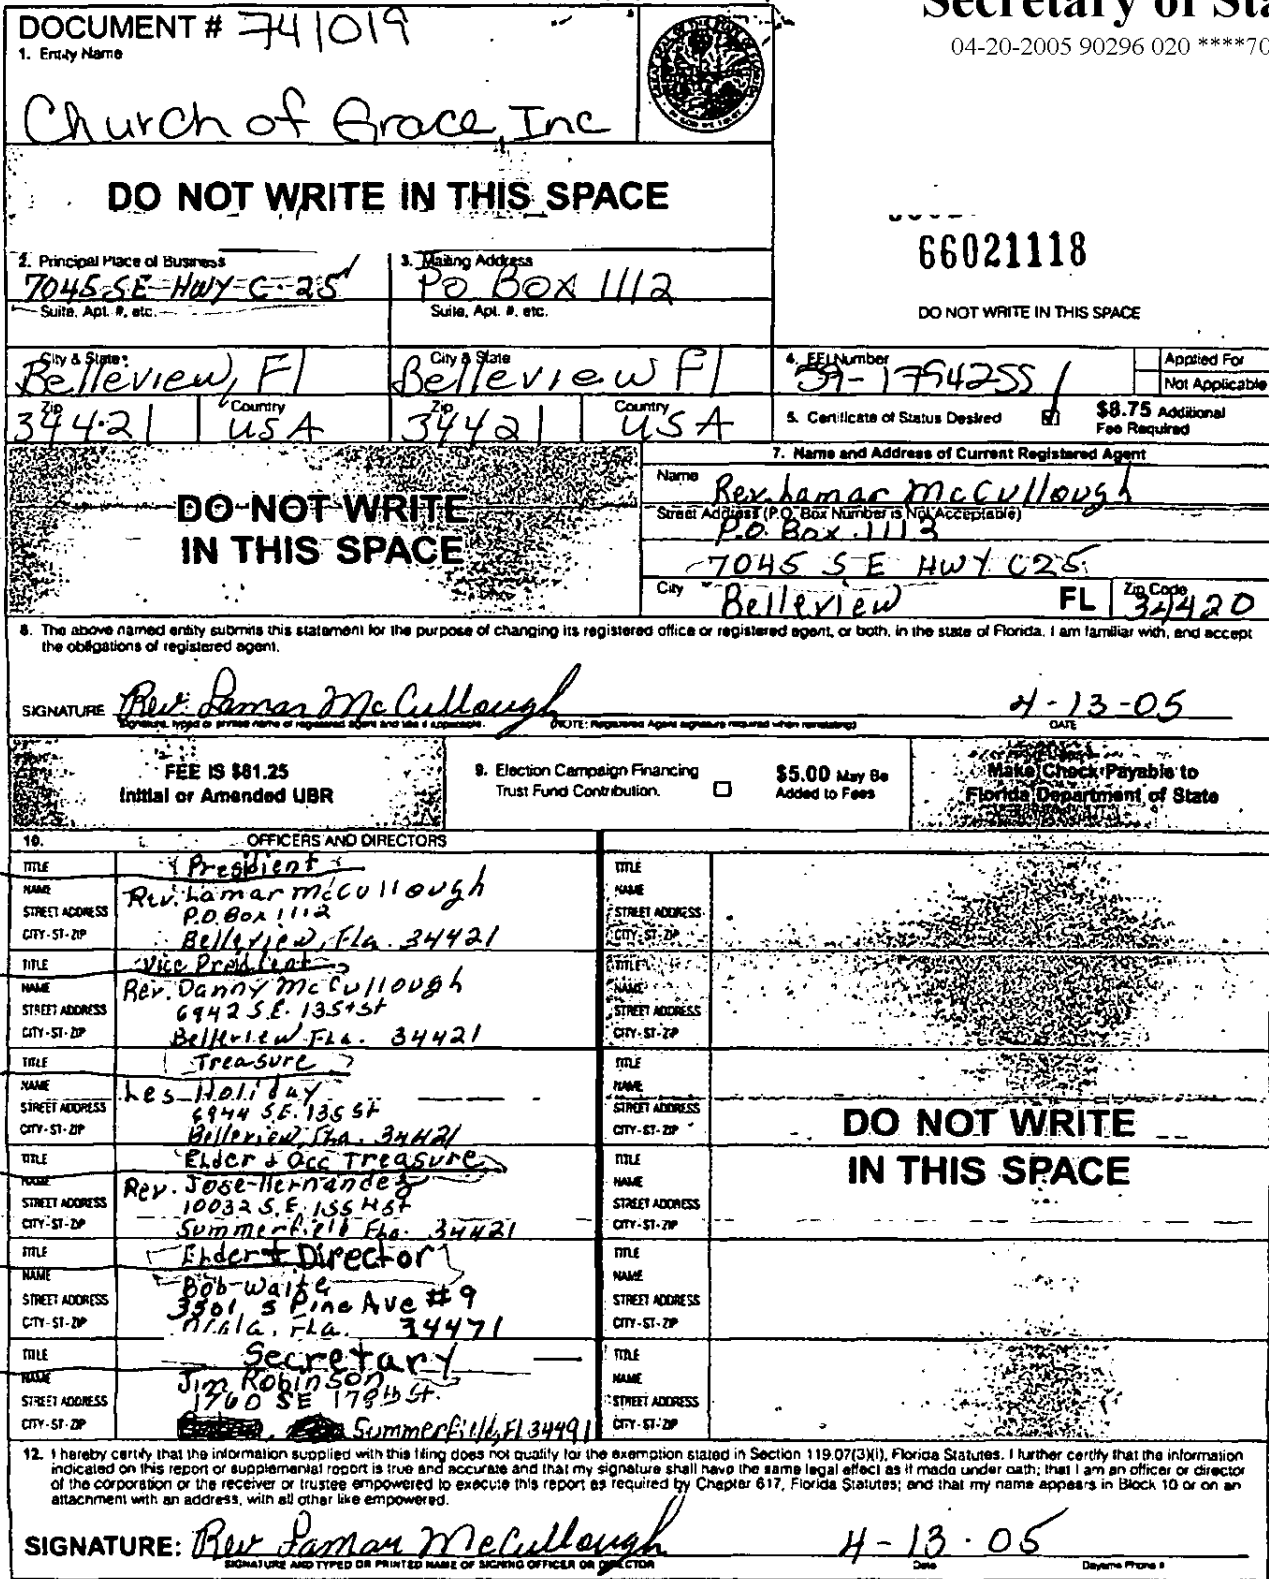 Secretary of Sta
04-20-2005 90296 020 ****70
DOCUMENT # 741019
1. Entity Name
Church of Grace, Inc
DO NOT WRITE IN THIS SPACE
66021118
DO NOT WRITE IN THIS SPACE
2. Principal Place of Business
7045 SE HWY C-25
Suite, Apt. #, etc.
3. Mailing Address
PO BOX 1112
Suite, Apt. #, etc.
City & State
Belleview, Fl
City & State
Belleview Fl
4. FEI Number
59-1794255
Applied For
Not Applicable
Zip
34421
Country
USA
Zip
34421
Country
USA
5. Certificate of Status Desired
$8.75 Additional
Fee Required
DO NOT WRITE
IN THIS SPACE
7. Name and Address of Current Registered Agent
Name
Rev. Lamar McCullough
Street Address (P.O. Box Number is Not Acceptable)
P.O. Box 1113
7045 SE HWY C25
City
Belleview
FL
Zip Code
34420
8. The above named entity submits this statement for the purpose of changing its registered office or registered agent, or both, in the state of Florida. I am familiar with, and accept
the obligations of registered agent.
SIGNATURE Rev. Lamar McCullough
4-13-05
Signature, typed or printed name of registered agent and title if applicable.
(NOTE: Registered Agent signature required when reinstating)
DATE
FEE IS $81.25
Initial or Amended UBR
9. Election Campaign Financing
Trust Fund Contribution.
$5.00 May Be
Added to Fees
Make Check Payable to
Florida Department of State
10. OFFICERS AND DIRECTORS
TITLE President
NAME Rev. Lamar McCullough
STREET ADDRESS P.O. Box 1112
CITY-ST-ZIP Belleview, Fla. 34421
TITLE Vice President
NAME Rev. Danny McCullough
STREET ADDRESS 6942 S.E. 135st St
CITY-ST-ZIP Belleview Fla. 34421
TITLE Treasure
NAME Les Holiday
STREET ADDRESS 6944 SE. 135 St
CITY-ST-ZIP Belleview, Fla. 34421
TITLE Elder & Acc Treasure
NAME Rev. Jose Hernandez
STREET ADDRESS 10032 S.E. 155 H St
CITY-ST-ZIP Summerfield Fla. 34421
TITLE Elder & Director
NAME Bob Waite
STREET ADDRESS 3501 S Pine Ave #9
CITY-ST-ZIP Ocala, Fla. 34471
TITLE Secretary
NAME Jim Robinson
STREET ADDRESS 1760 SE 178th St.
CITY-ST-ZIP Summerfield, Fl 34491
TITLE
NAME
STREET ADDRESS
CITY-ST-ZIP
TITLE
NAME
STREET ADDRESS
CITY-ST-ZIP
TITLE
NAME
STREET ADDRESS
CITY-ST-ZIP
TITLE
NAME
STREET ADDRESS
CITY-ST-ZIP
TITLE
NAME
STREET ADDRESS
CITY-ST-ZIP
TITLE
NAME
STREET ADDRESS
CITY-ST-ZIP
DO NOT WRITE
IN THIS SPACE
12. I hereby certify that the information supplied with this filing does not qualify for the exemption stated in Section 119.07(3)(i), Florida Statutes. I further certify that the information
indicated on this report or supplemental report is true and accurate and that my signature shall have the same legal effect as if made under oath; that I am an officer or director
of the corporation or the receiver or trustee empowered to execute this report as required by Chapter 617, Florida Statutes; and that my name appears in Block 10 or on an
attachment with an address, with all other like empowered.
SIGNATURE: Rev Lamar McCullough
4-13-05
SIGNATURE AND TYPED OR PRINTED NAME OF SIGNING OFFICER OR DIRECTOR
Date
Daytime Phone #